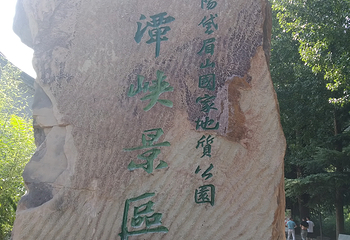 陽岱眉山國家地質公園
潭峡景區